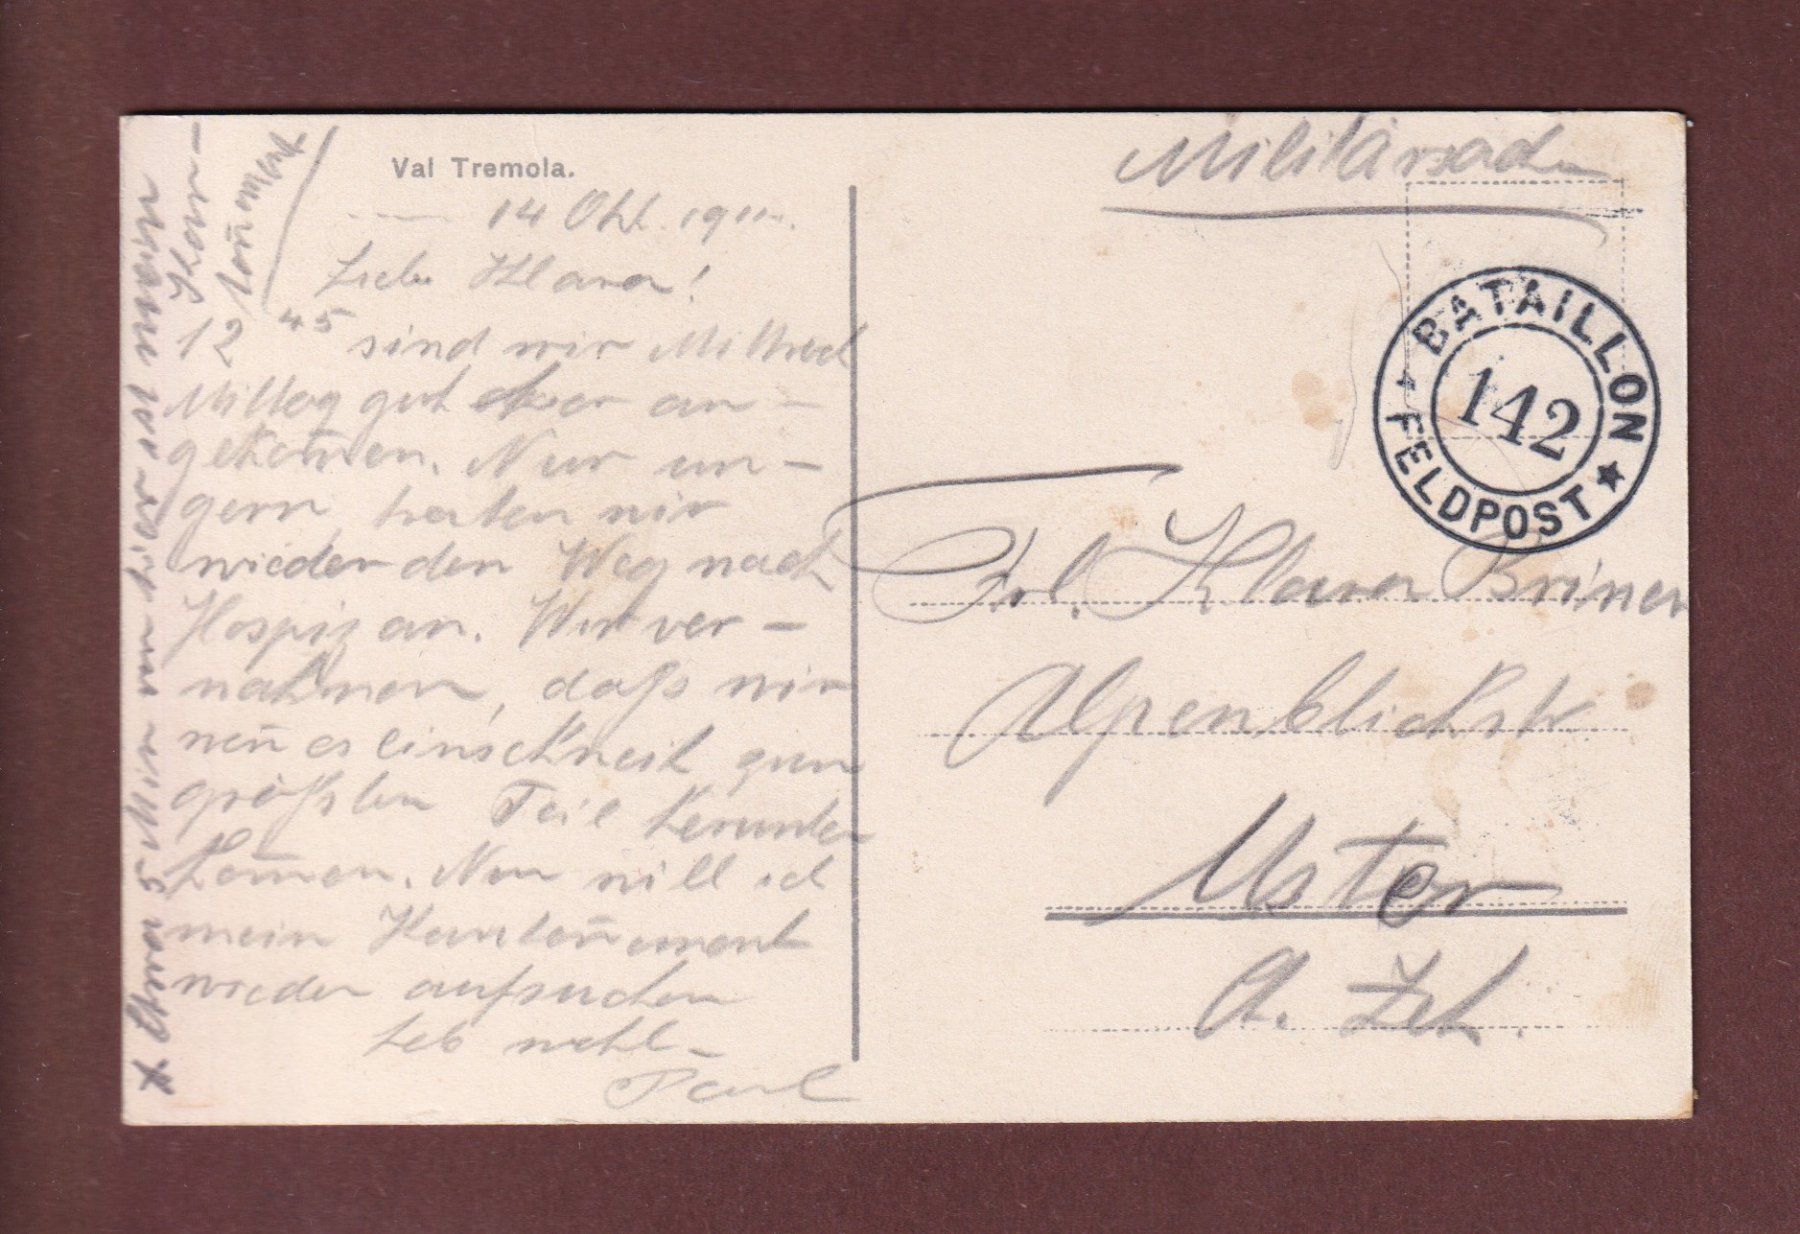 Val Tremola.
14 Okt. 191
Liebe Klara!
12 45 sind wir Mittwoch
Mittag gut an-
gekom̄en. Nur un-
gern traten wir
wieder den Weg nach
Hospiz an. Wir ver-
nahmen, daß wir
wen̄ es einschneit zum
größten Teil herunter
kom̄en. Nun will ich
mein Kanton̄ement
wieder aufsuchen
Leb wohl
Paul
Militärsache
BATAILLON
142
FELDPOST
Frl. Klara Briner
Alpenblickstr
Uster
Ct. Zch.